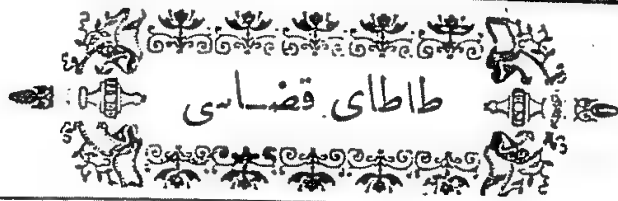 طاطای قضاسی